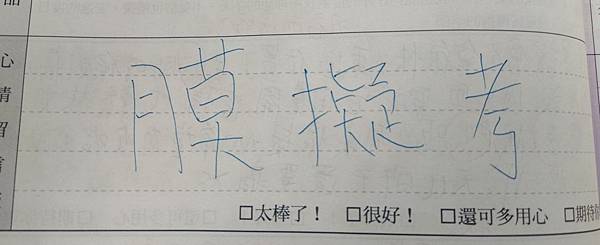 品
心情留言
膜擬考
□太棒了！ □很好！ □還可多用心 □期待